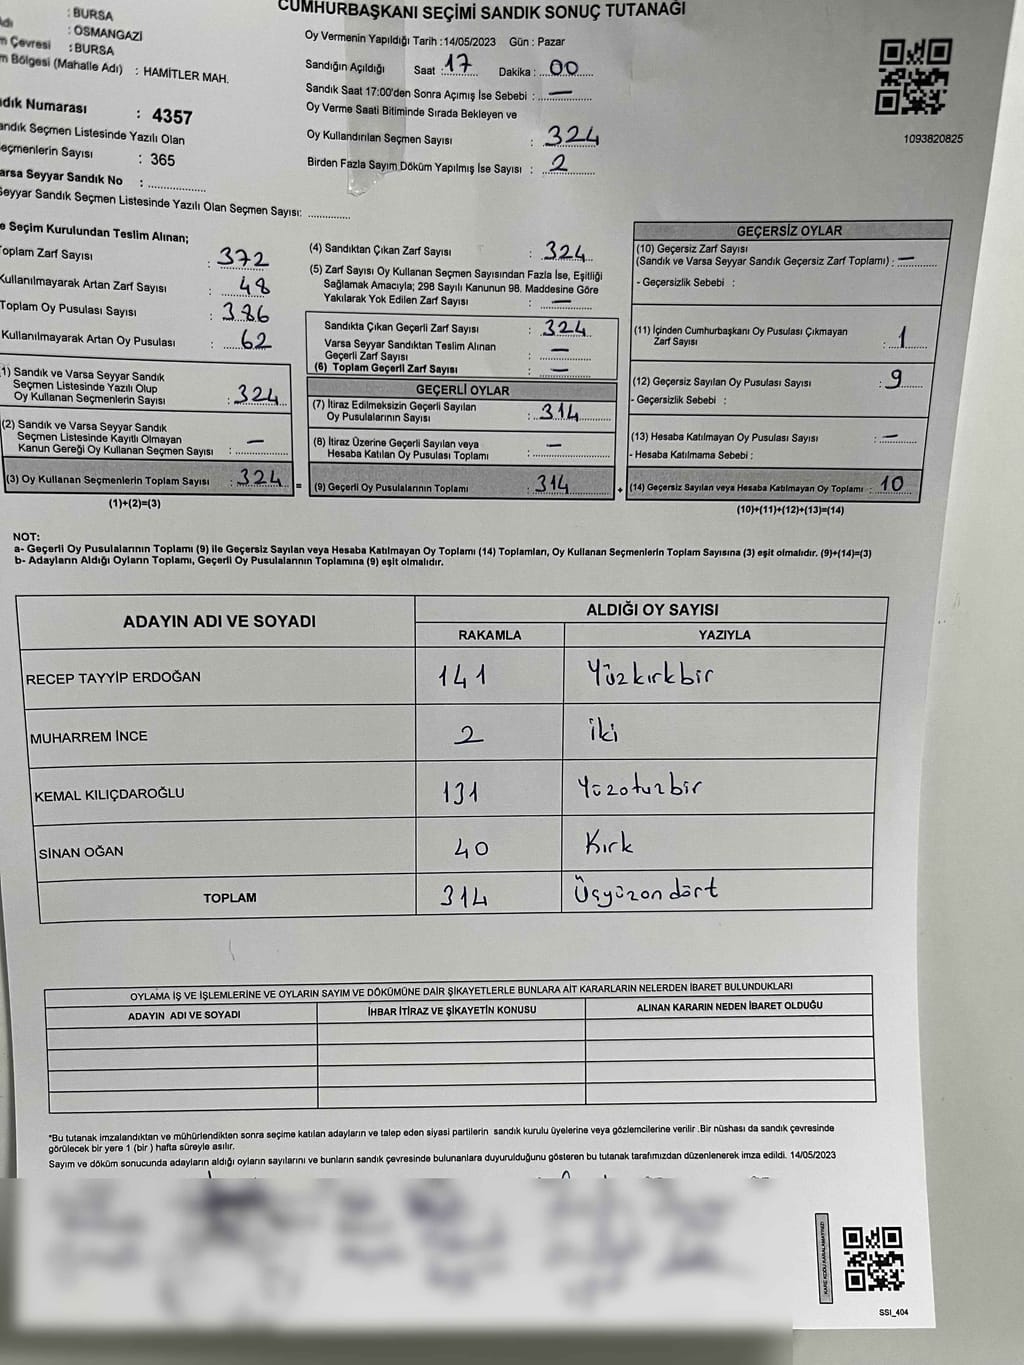 CUMHURBAŞKANI SEÇİMİ SANDIK SONUÇ TUTANAĞI
: BURSA
: OSMANGAZİ
Çevresi : BURSA
Bölgesi (Mahalle Adı) : HAMİTLER MAH.
Numarası : 4357
Seçmen Listesinde Yazılı Olan
Sayısı : 365
Seyyar Sandık No : ...............
Seyyar Sandık Seçmen Listesinde Yazılı Olan Seçmen Sayısı: ............
Oy Vermenin Yapıldığı Tarih :14/05/2023 Gün : Pazar
Sandığın Açıldığı Saat : 17 Dakika : 00
Sandık Saat 17:00'den Sonra Açımış İse Sebebi : —
Oy Verme Saati Bitiminde Sırada Bekleyen ve
Oy Kullandırılan Seçmen Sayısı : 324
Birden Fazla Sayım Döküm Yapılmış İse Sayısı : 2
1093820825
Seçim Kurulundan Teslim Alınan;
Toplam Zarf Sayısı : 372
Kullanılmayarak Artan Zarf Sayısı : 48
Toplam Oy Pusulası Sayısı : 386
Kullanılmayarak Artan Oy Pusulası : 62
(1) Sandık ve Varsa Seyyar Sandık
Seçmen Listesinde Yazılı Olup
Oy Kullanan Seçmenlerin Sayısı : 324
(2) Sandık ve Varsa Seyyar Sandık
Seçmen Listesinde Kayıtlı Olmayan
Kanun Gereği Oy Kullanan Seçmen Sayısı : —
(3) Oy Kullanan Seçmenlerin Toplam Sayısı : 324 =
(1)+(2)=(3)
(4) Sandıktan Çıkan Zarf Sayısı : 324
(5) Zarf Sayısı Oy Kullanan Seçmen Sayısından Fazla İse, Eşitliği
Sağlamak Amacıyla; 298 Sayılı Kanunun 98. Maddesine Göre
Yakılarak Yok Edilen Zarf Sayısı : —
Sandıkta Çıkan Geçerli Zarf Sayısı : 324
Varsa Seyyar Sandıktan Teslim Alınan
Geçerli Zarf Sayısı : —
(6) Toplam Geçerli Zarf Sayısı : —
GEÇERLİ OYLAR
(7) İtiraz Edilmeksizin Geçerli Sayılan
Oy Pusulalarının Sayısı : 314
(8) İtiraz Üzerine Geçerli Sayılan veya
Hesaba Katılan Oy Pusulası Toplamı : —
(9) Geçerli Oy Pusulalarının Toplamı : 314 +
GEÇERSİZ OYLAR
(10) Geçersiz Zarf Sayısı
(Sandık ve Varsa Seyyar Sandık Geçersiz Zarf Toplamı) : —
- Geçersizlik Sebebi :
(11) İçinden Cumhurbaşkanı Oy Pusulası Çıkmayan
Zarf Sayısı : 1
(12) Geçersiz Sayılan Oy Pusulası Sayısı : 9
- Geçersizlik Sebebi :
(13) Hesaba Katılmayan Oy Pusulası Sayısı : —
- Hesaba Katılmama Sebebi :
(14) Geçersiz Sayılan veya Hesaba Katılmayan Oy Toplamı : 10
(10)+(11)+(12)+(13)=(14)
NOT:
a- Geçerli Oy Pusulalarının Toplamı (9) ile Geçersiz Sayılan veya Hesaba Katılmayan Oy Toplamı (14) Toplamları, Oy Kullanan Seçmenlerin Toplam Sayısına (3) eşit olmalıdır. (9)+(14)=(3)
b- Adayların Aldığı Oyların Toplamı, Geçerli Oy Pusulalarının Toplamına (9) eşit olmalıdır.
ADAYIN ADI VE SOYADI ALDIĞI OY SAYISI
RAKAMLA YAZIYLA
RECEP TAYYİP ERDOĞAN 141 Yüzkırkbir
MUHARREM İNCE 2 İki
KEMAL KILIÇDAROĞLU 131 Yüzotuzbir
SİNAN OĞAN 40 Kırk
TOPLAM 314 Üçyüzondört
OYLAMA İŞ VE İŞLEMLERİNE VE OYLARIN SAYIM VE DÖKÜMÜNE DAİR ŞİKAYETLERLE BUNLARA AİT KARARLARIN NELERDEN İBARET BULUNDUKLARI
ADAYIN ADI VE SOYADI İHBAR İTİRAZ VE ŞİKAYETİN KONUSU ALINAN KARARIN NEDEN İBARET OLDUĞU
*Bu tutanak imzalandıktan ve mühürlendikten sonra seçime katılan adayların ve talep eden siyasi partilerin sandık kurulu üyelerine veya gözlemcilerine verilir .Bir nüshası da sandık çevresinde
görülecek bir yere 1 (bir ) hafta süreyle asılır.
Sayım ve döküm sonucunda adayların aldığı oyların sayılarını ve bunların sandık çevresinde bulunanlara duyurulduğunu gösteren bu tutanak tarafımızdan düzenlenerek imza edildi. 14/05/2023
SSI_404